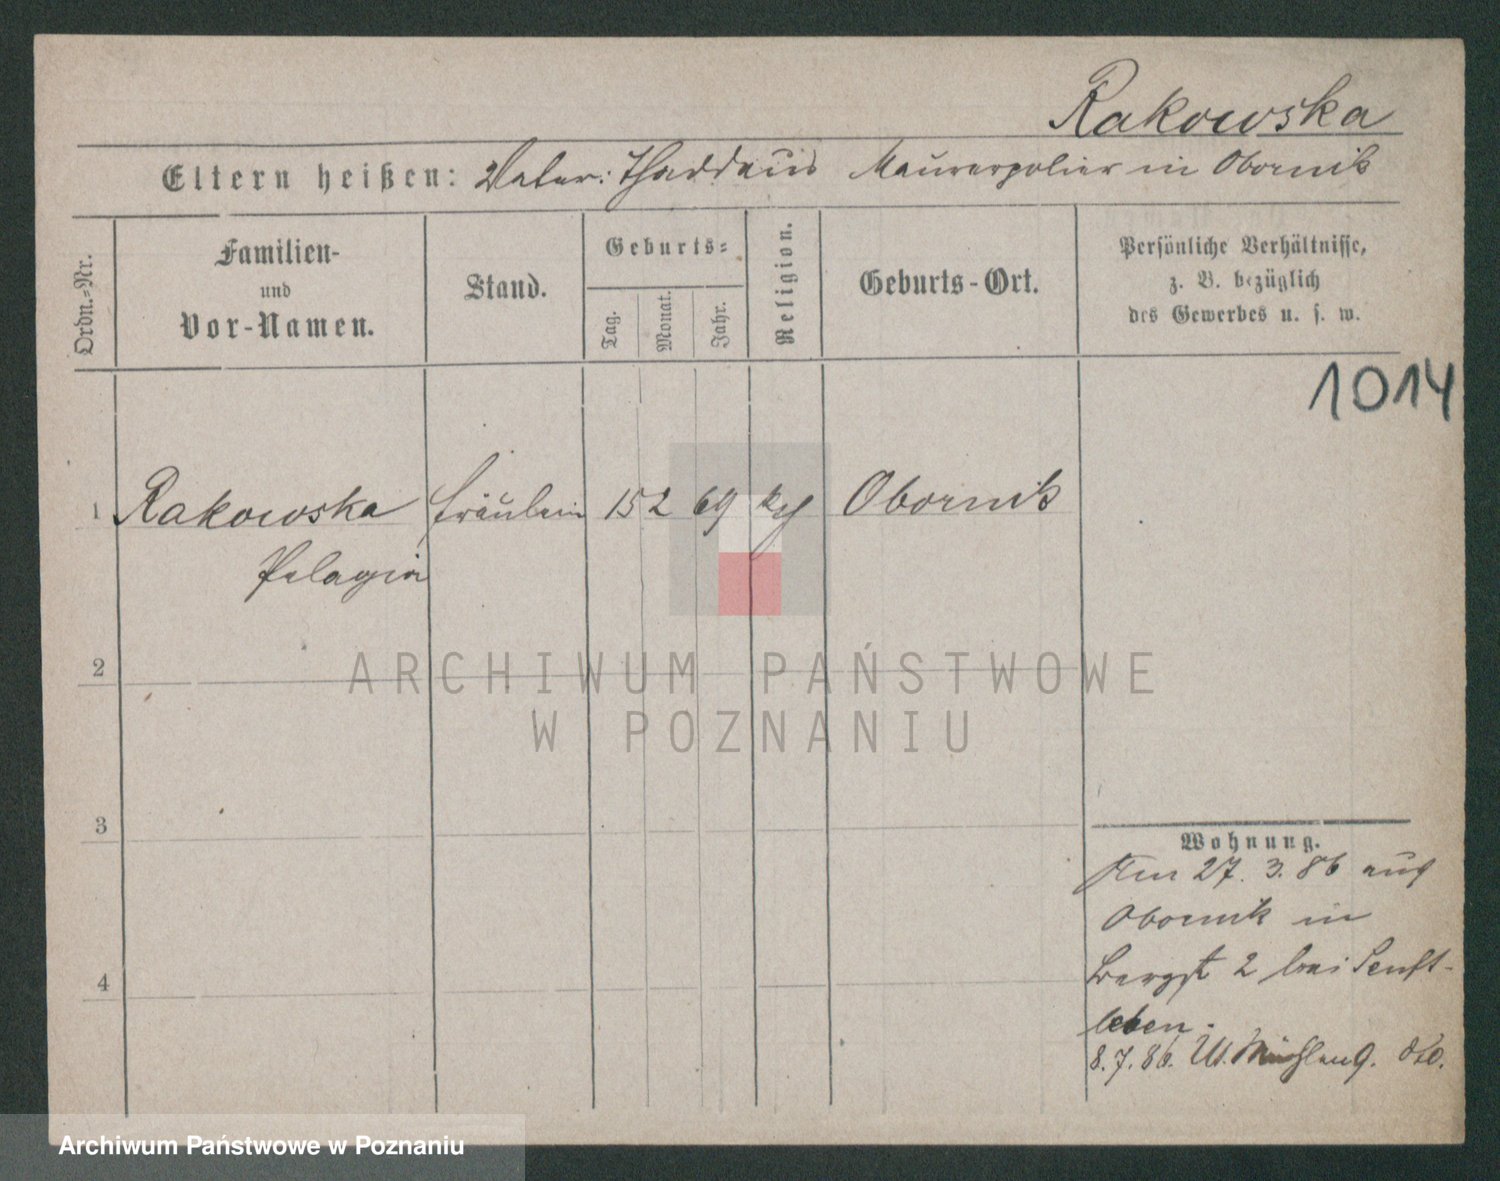 Rakowska
Eltern heißen: Vater: Thaddäus Maurerpolier in Obornik
Ordn.-Nr.
Familien-
und
Vor-Namen.
Stand.
Geburts-
Tag.
Monat.
Jahr.
Religion.
Geburts-Ort.
Persönliche Verhältnisse,
z. B. bezüglich
des Gewerbes u. s. w.
1014
1 Rakowska Fräulein 15 2 69 Obornik
Pelagia
2
ARCHIWUM PAŃSTWOWE
W POZNANIU
3
Wohnung.
Am 27. 3. 86 aus
Obornik in
Bergst 2 bei Senft-
4
leben.
8. 7. 86. Ut. Mühlen 9. dto.
Archiwum Państwowe w Poznaniu